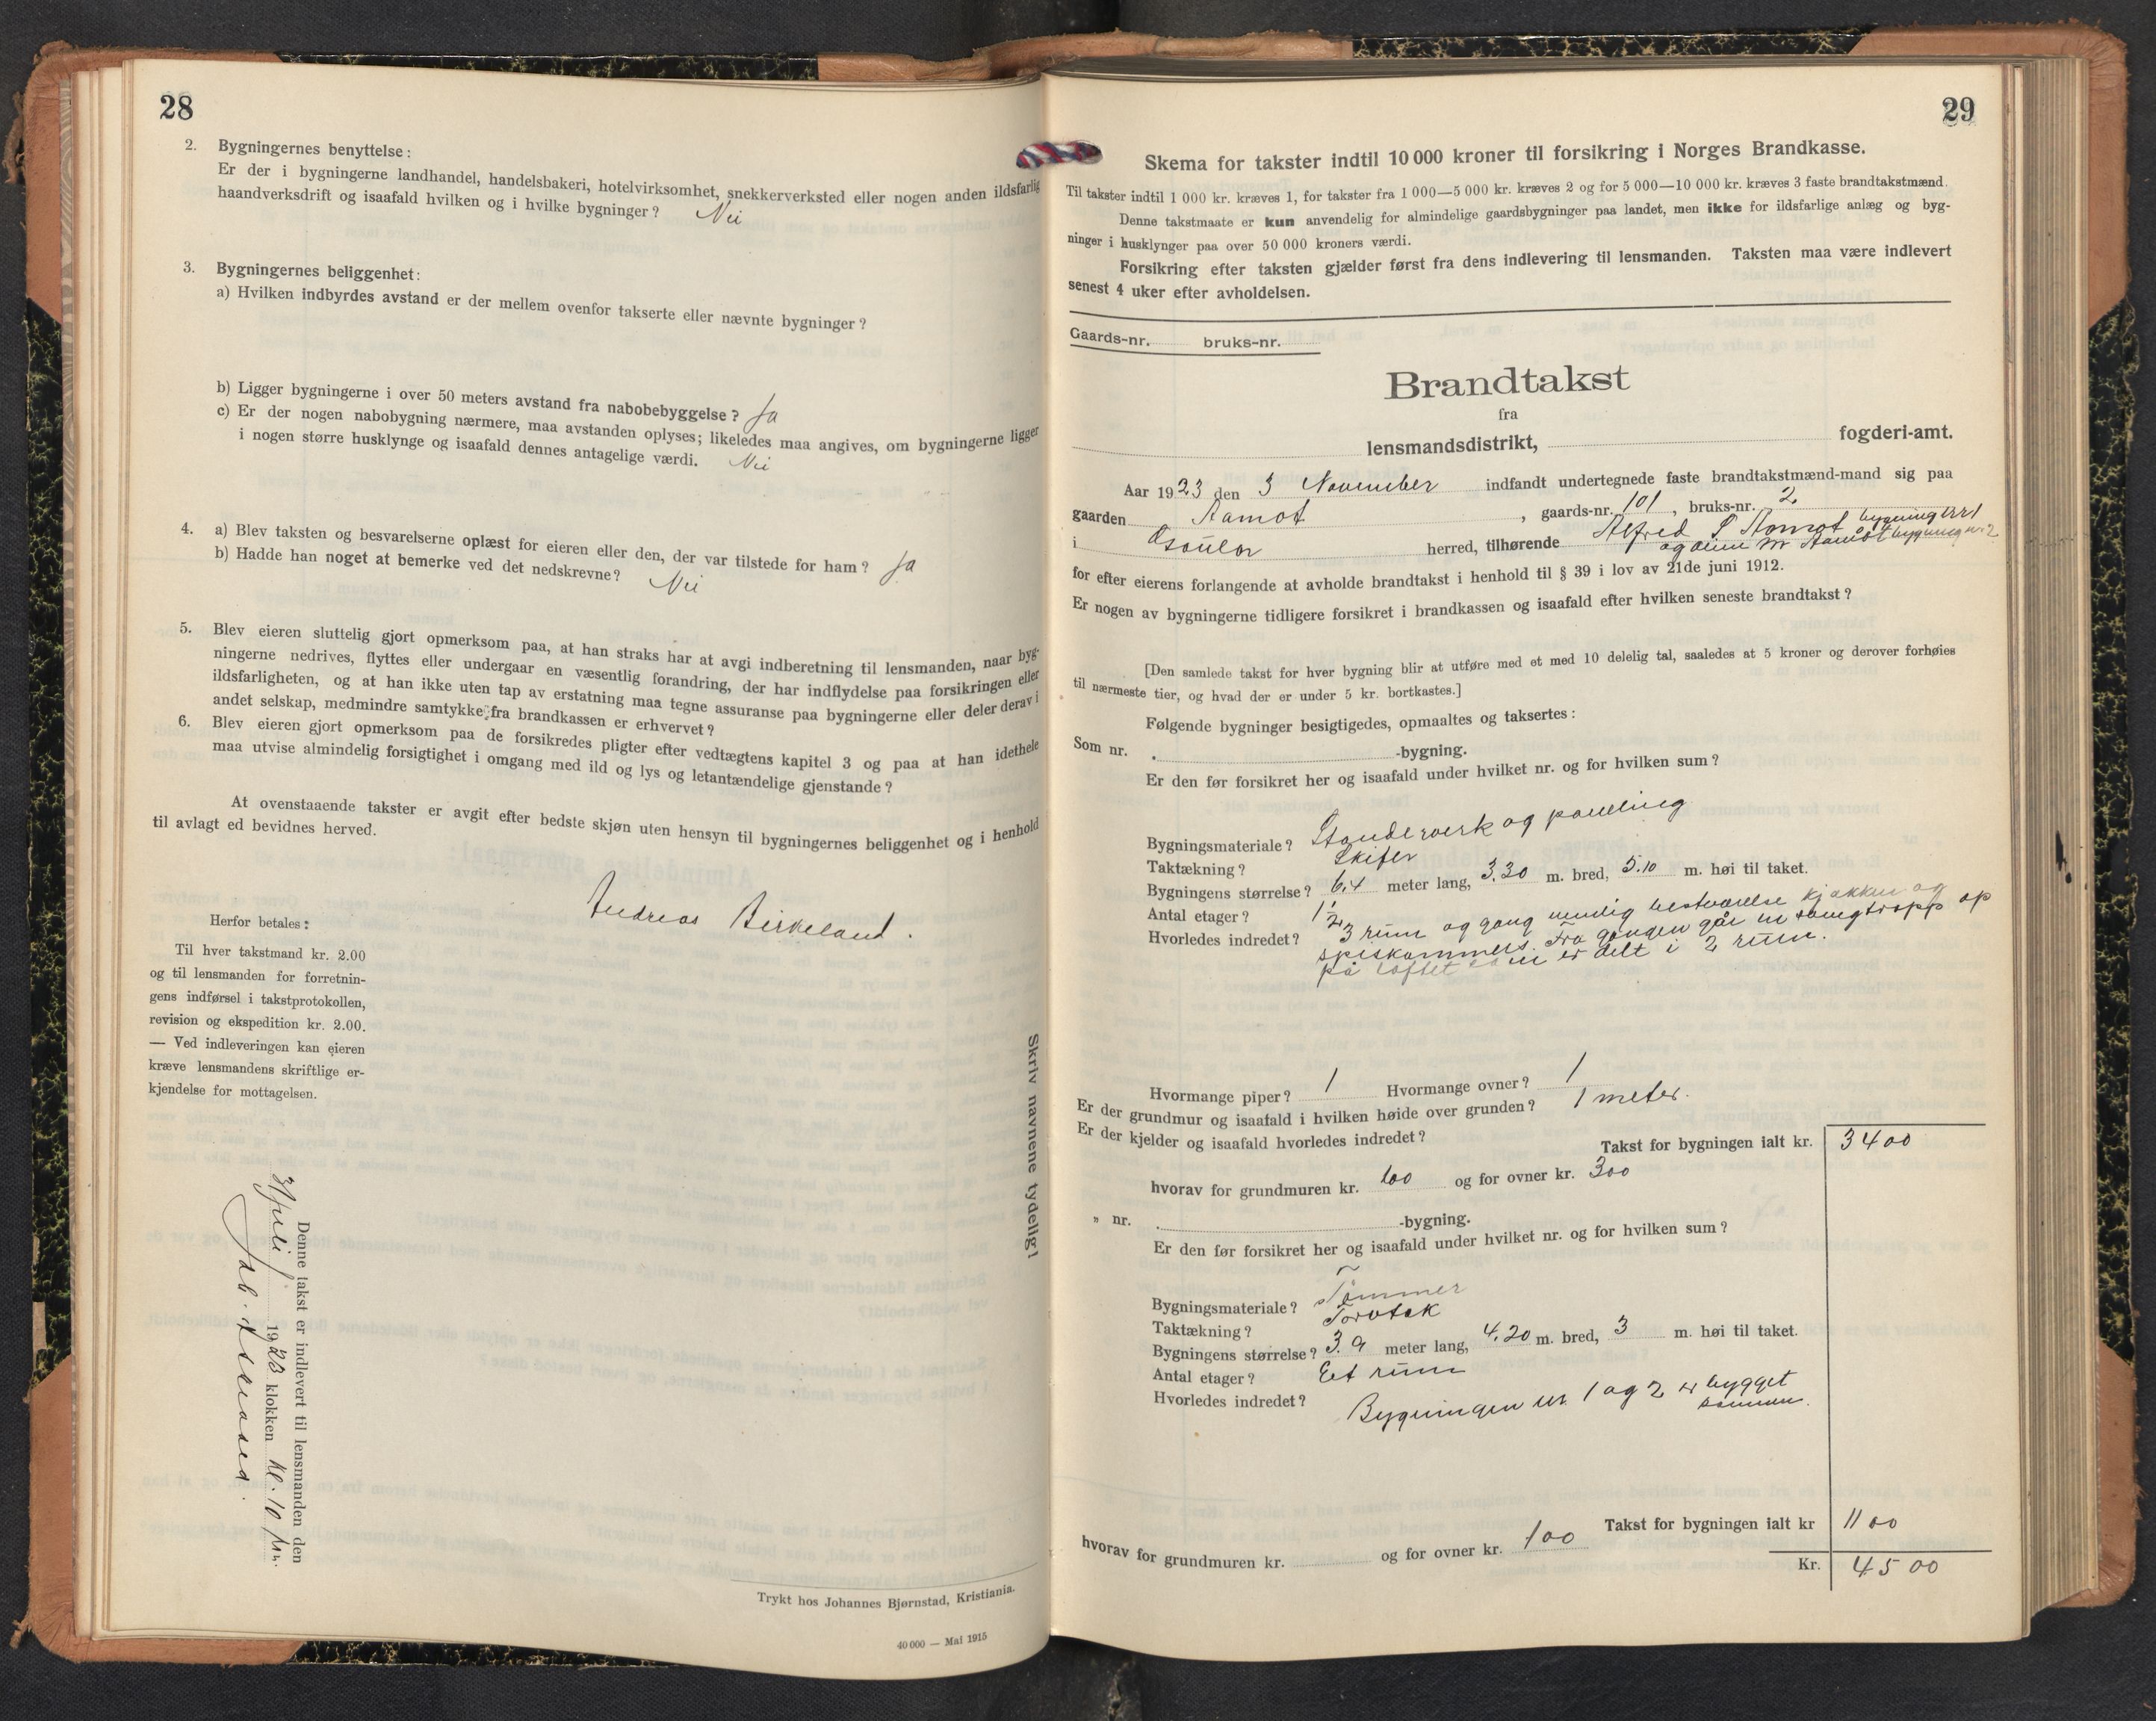 28
2. Bygningernes benyttelse:
Er der i bygningerne landhandel, handelsbakeri, hotelvirksomhet, snekkerverksted eller nogen anden ildsfarlig
haandverksdrift og isaafald hvilken og i hvilke bygninger? Nei
3. Bygningernes beliggenhet:
a) Hvilken indbyrdes avstand er der mellem ovenfor takserte eller nævnte bygninger?
b) Ligger bygningerne i over 50 meters avstand fra nabobebyggelse? Ja
c) Er der nogen nabobygning nærmere, maa avstanden oplyses; likeledes maa angives, om bygningerne ligger
i nogen større husklynge og isaafald dennes antagelige værdi. Nei
4. a) Blev taksten og besvarelserne oplæst for eieren eller den, der var tilstede for ham? Ja
b) Hadde han noget at bemerke ved det nedskrevne? Nei
5. Blev eieren sluttelig gjort opmerksom paa, at han straks har at avgi indberetning til lensmanden, naar byg-
ningerne nedrives, flyttes eller undergaar en væsentlig forandring, der har indflydelse paa forsikringen eller
ildsfarligheten, og at han ikke uten tap av erstatning maa tegne assuranse paa bygningerne eller deler derav i
andet selskap, medmindre samtykke fra brandkassen er erhvervet?
6. Blev eieren gjort opmerksom paa de forsikredes pligter efter vedtægtens kapitel 3 og paa at han idethele
maa utvise almindelig forsigtighet i omgang med ild og lys og letantændelige gjenstande?
At ovenstaaende takster er avgit efter bedste skjøn uten hensyn til bygningernes beliggenhet og i henhold
til avlagt ed bevidnes herved.
Andreas Birkeland.
Herfor betales:
Til hver takstmand kr. 2.00
og til lensmanden for forretnin-
gens indførsel i takstprotokollen,
revision og ekspedition kr. 2.00.
— Ved indleveringen kan eieren
kræve lensmandens skriftlige er-
kjendelse for mottagelsen.
Skriv navnene tydelig!
Denne takst er indlevert til lensmanden den
3/juli 1923 klokken kl. 10 fm.
Jab.
Trykt hos Johannes Bjørnstad, Kristiania.
40 000 — Mai 1915
29
Skema for takster indtil 10 000 kroner til forsikring i Norges Brandkasse.
Til takster indtil 1 000 kr. kræves 1, for takster fra 1 000—5 000 kr. kræves 2 og for 5 000—10 000 kr. kræves 3 faste brandtakstmænd.
Denne takstmaate er kun anvendelig for almindelige gaardsbygninger paa landet, men ikke for ildsfarlige anlæg og byg-
ninger i husklynger paa over 50 000 kroners værdi.
Forsikring efter taksten gjælder først fra dens indlevering til lensmanden. Taksten maa være indlevert
senest 4 uker efter avholdelsen.
Gaards-nr. bruks-nr.
Brandtakst
fra
lensmandsdistrikt, fogderi-amt.
Aar 1923 den 3 November indfandt undertegnede faste brandtakstmænd-mand sig paa
gaarden Aamot, gaards-nr. 101, bruks-nr. 2
i herred, tilhørende Alfred S Aamot bygning nr 1
og M Aamot bygning nr 2
for efter eierens forlangende at avholde brandtakst i henhold til § 39 i lov av 21de juni 1912.
Er nogen av bygningerne tidligere forsikret i brandkassen og isaafald efter hvilken seneste brandtakst?
[Den samlede takst for hver bygning blir at utføre med et med 10 delelig tal, saaledes at 5 kroner og derover forhøies
til nærmeste tier, og hvad der er under 5 kr. bortkastes.]
Følgende bygninger besigtigedes, opmaaltes og taksertes:
Som nr. -bygning.
Er den før forsikret her og isaafald under hvilket nr. og for hvilken sum?
Bygningsmateriale? Standerverk og paneling
Taktækning? Skifer
Bygningens størrelse? 6.4 meter lang, 3.30 m. bred, 5.10 m. høi til taket.
Antal etager? 1½
Hvorledes indredet? 3 rum og gang nemlig bestværelse kjøkken og
spiskammers. Fra gangen går en svingtrapp op
på loftet som er delt i 2 rum.
Hvormange piper? 1 Hvormange ovner? 1
Er der grundmur og isaafald i hvilken høide over grunden? 1 meter.
Er der kjelder og isaafald hvorledes indredet?
Takst for bygningen ialt kr. 3400
hvorav for grundmuren kr. 600 og for ovner kr. 300
„ nr. -bygning.
Er den før forsikret her og isaafald under hvilket nr. og for hvilken sum?
Bygningsmateriale? Tømmer
Taktækning? Torvtak
Bygningens størrelse? 3.9 meter lang, 4.20 m. bred, 3 m. høi til taket.
Antal etager? Et rum
Hvorledes indredet? Bygningen nr 1 og 2 er bygget
sammen.
Takst for bygningen ialt kr 1100
hvorav for grundmuren kr. og for ovner kr. 100
Kr. 4500